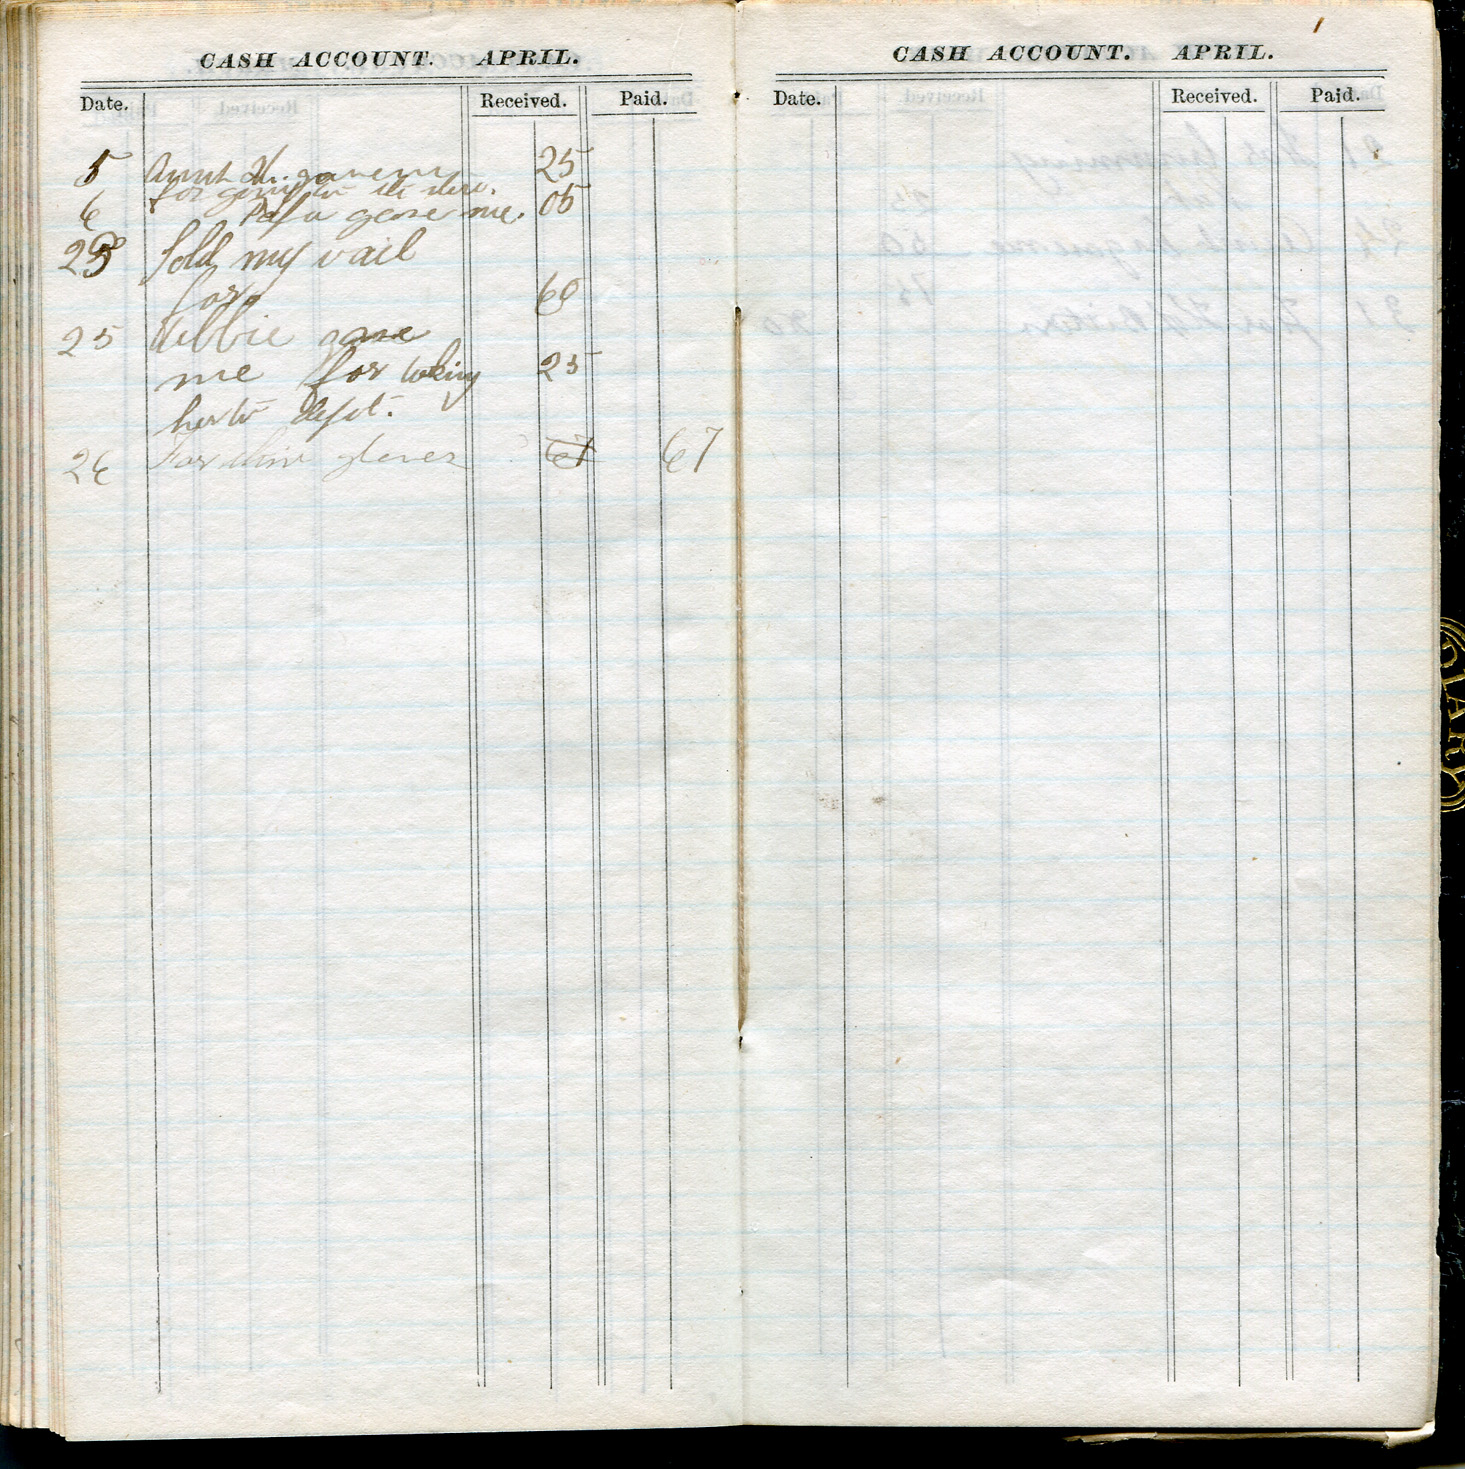 CASH ACCOUNT. APRIL.
Date. Received. Paid.
5 Aunt H. gave me 25
for going to the
6 Papa gave me. 05
23 Sold my vail
for 60
25 Debbie gave
me for taking 25
her to depot.
26 For thin gloves 67 67
CASH ACCOUNT. APRIL.
Date. Received. Paid.
DIARY